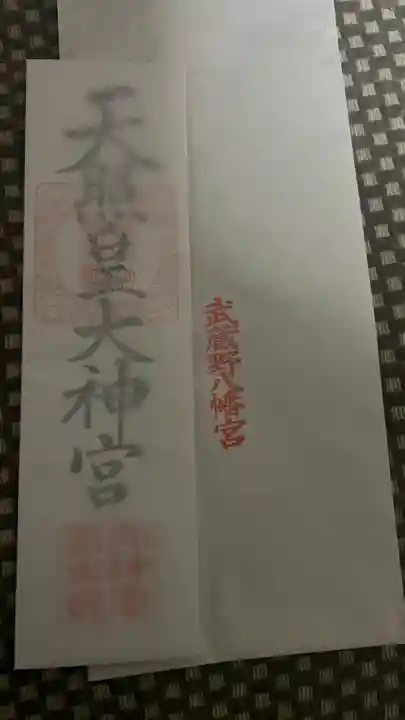 天照皇大神宮
武蔵野八幡宮